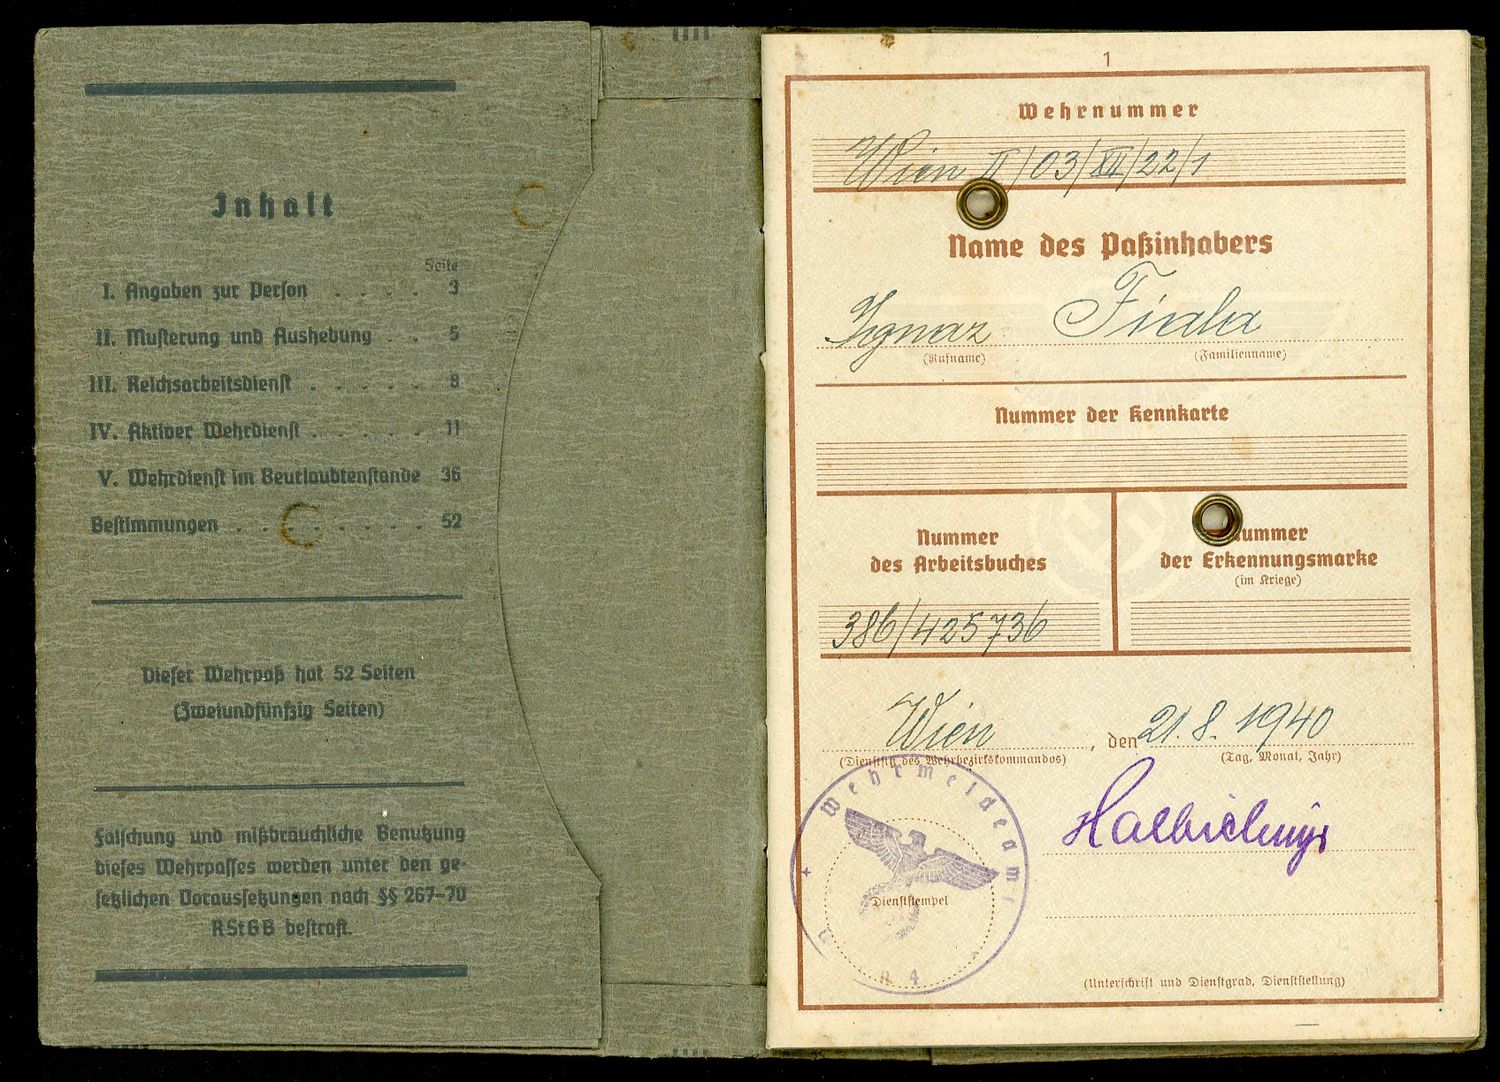 Inhalt
Seite
I. Angaben zur Person . . . . 3
II. Musterung und Aushebung . . 5
III. Reichsarbeitsdienst . . . . . 8
IV. Aktiver Wehrdienst . . . . . 11
V. Wehrdienst im Beurlaubtenstande 36
Bestimmungen . . . . . . . . 52
Dieser Wehrpaß hat 52 Seiten
(Zweiundfünfzig Seiten)
Fälschung und mißbräuchliche Benutzung
dieses Wehrpasses werden unter den ge-
setzlichen Voraussetzungen nach §§ 267-70
RStGB bestraft.
1
Wehrnummer
Wien II/03/XII/22/1
Name des Paßinhabers
Ignaz Fiala
(Rufname) (Familienname)
Nummer der Kennkarte
Nummer
des Arbeitsbuches
386/425736
Nummer
der Erkennungsmarke
(im Kriege)
Wien, den 21.8.1940
(Dienstsitz des Wehrbezirkskommandos) (Tag, Monat, Jahr)
Wehrmeldeamt
Dienststempel
4
(Unterschrift und Dienstgrad, Dienststellung)